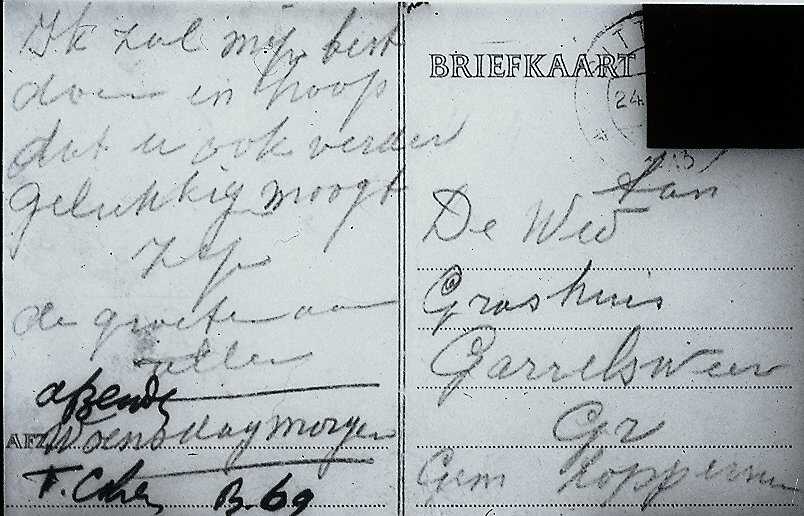 Ik zal mijn best
doen en hoop
dat u ook verder
gelukkig moogt
zijn
de groeten aan
allen
afzender
AFZ. Woensdag morgen
F. Cohen B. 69
BRIEFKAART
24
Aan
De Wed
Groshuis
Garrelsweer
Gr
Gem Loppersum